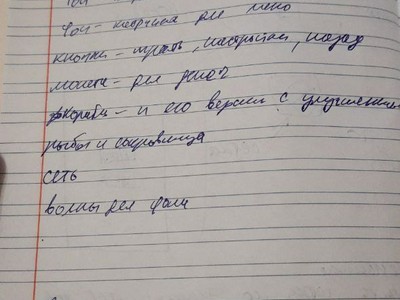 Фон - картинка для меню
кнопки - играть, настройки, назад
монеты - для денег
корабль - и его версии с улучшениями
рыбы и сокровища
сеть
волны для фона